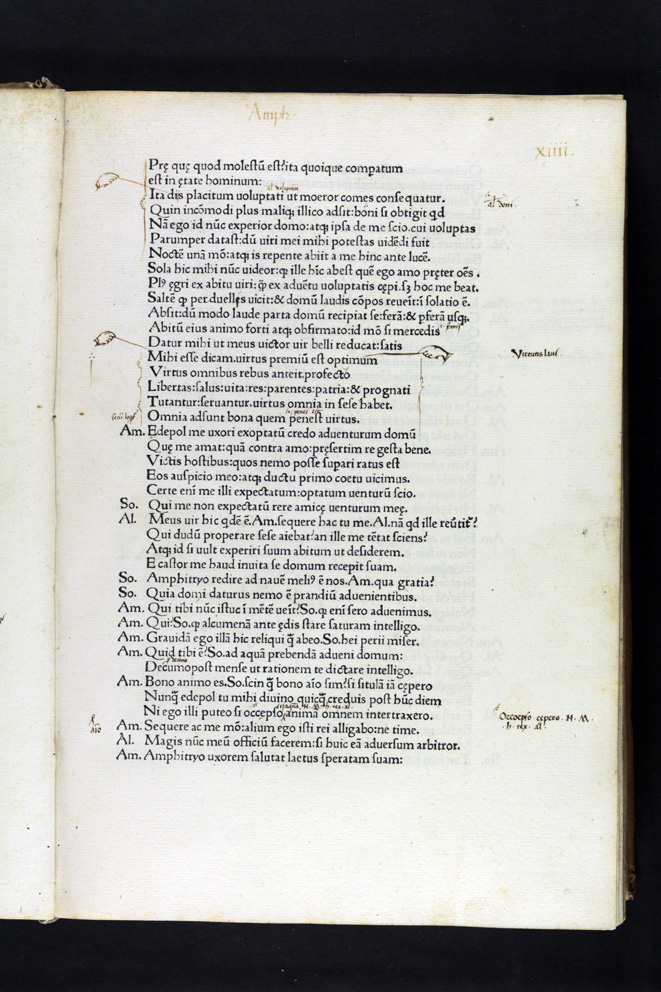 Amph.
xiiii.
Prę quę quod molestũ est?ita quoique compatum
est in ętate hominum:
Ita dijs placitum uoluptati ut moeror comes consequatur.
Quin incõmodi plus maliqʒ illico adsit:boni si obtigit qd
Nã ego id nũc experior domo:atqʒ ipsa de me scio.cui uoluptas
Parumper datast:dũ uiri mei mihi potestas uidẽdi fuit
Noctẽ unã mõ:atqʒ is repente abiit a me hinc ante lucẽ.
Sola hic mihi nũc uideor:qꝫ ille hĩc abest quẽ ego amo pręter oẽs.
Plꝰ ęgri ex abitu uiri:ꝙ̃ ex aduẽtu uoluptatis cępi.sʒ hoc me beat.
Saltẽ ꝙ perduelles uicit:& domũ laudis cõpos reuẽit:i solatio ẽ.
Absit:dũ modo laude parta domũ recipiat se:ferã:& pferã usqʒ.
Abitũ eius animo forti atqʒ obfirmato:id mõ si mercedis
Datur mihi ut meus uictor uir belli reducat:satis
Mihi esse dicam.uirtus premiũ est optimum
Virtutis laus
Virtus omnibus rebus anteit.profecto
Libertas:salus:uita:res:parentes:patria:& prognati
Tutantur:seruantur.uirtus omnia in sese habet.
Omnia adsunt bona quem penest uirtus.
Am. Edepol me uxori exoptatũ credo aduenturum domũ
Quę me amat:quã contra amo:pręsertim re gesta bene.
Victis hostibus:quos nemo posse supari ratus est
Eos auspicio meo:atqʒ ductu primo coetu uicimus.
Certe enĩ me illi expectatum:optatum uenturũ scio.
So. Qui me non expectatũ rere amicę uenturum meę.
Al. Meus uir hic qdẽ ẽ.Am.sequere hac tu me.Al.nã qd ille reũtit?
Qui dudũ properare sese aiebat?an ille me tẽtat sciens?
Atqʒ id si uult experiri suum abitum ut desiderem.
Ecastor me haud inuita se domum recepit suam.
So. Amphitryo redire ad nauẽ meliꝰ ẽ nos.Am.qua gratia?
So. Quia domi daturus nemo ẽ prandiũ aduenientibus.
Am. Qui tibi nũc istuc i mẽtẽ ueĩt?So.ꝙ enĩ sero aduenimus.
Am. Qui?So.ꝙ alcumenã ante ędis stare saturam intelligo.
Am. Grauidã ego illã hic reliqui q̃ abeo.So.hei perii miser.
Am. Quid tibi ẽ?So.ad aquã prebendã adueni domum:
Decumopost mense ut rationem te dictare intelligo.
Am. Bono animo es.So.scin q̃ bono aĩo sim?si situlã iã cępero
Nunq̃ edepol tu mihi diuino quicq̃ creduis post hũc diem
Ni ego illi puteo si occępso,animã omnem intertraxero.
Occoepso cępero .N.M.
Am. Sequere ac me mõ:alium ego isti rei alligabo:ne time.
Al. Magis nũc meũ officiũ facerem:si huic eã aduersum arbitror.
Am. Amphitryo uxorem salutat laetus speratam suam: